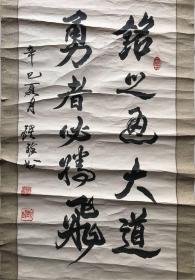 铭之通大道
勇者必腾飛
辛巳夏月